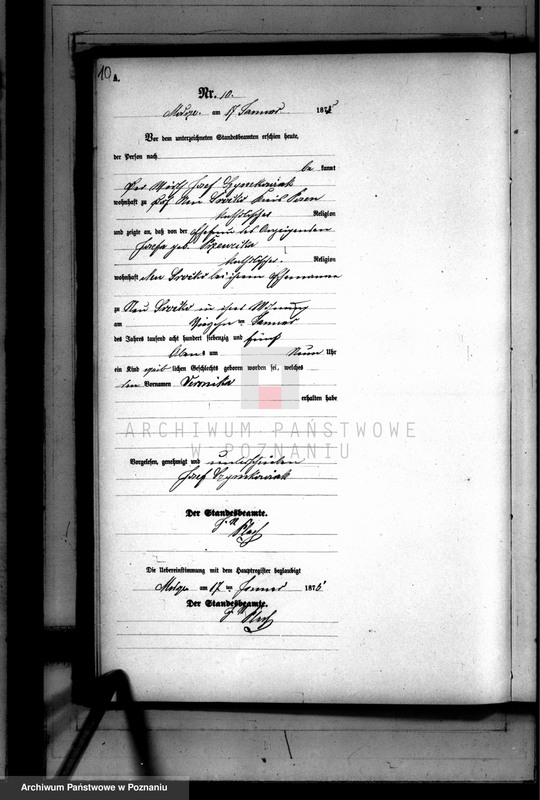 10
A.
Nr. 10.
am 17 Januar 1875
Vor dem unterzeichneten Standesbeamten erschien heute,
der Person nach
be kannt
Josef
wohnhaft zu Neu
katholischer Religion
und zeigte an, daß von der Ehefrau des Anzeigenden
Josefa geb.
katholischer Religion
wohnhaft Neu bei ihrem Ehemanne
zu Neu in ihrer Wohnung
am ten Januar
des Jahres tausend acht hundert siebenzig und fünf
Abends um Neun Uhr
ein Kind weib lichen Geschlechts geboren worden sei, welches
den Vornamen Veronika
erhalten habe
ARCHIWUM PAŃSTWOWE
W POZNANIU
Vorgelesen, genehmigt und unterschrieben
Josef
Der Standesbeamte.
Die Uebereinstimmung mit dem Hauptregister beglaubigt
am 17 ten Januar 1875
Der Standesbeamte.
Archiwum Państwowe w Poznaniu